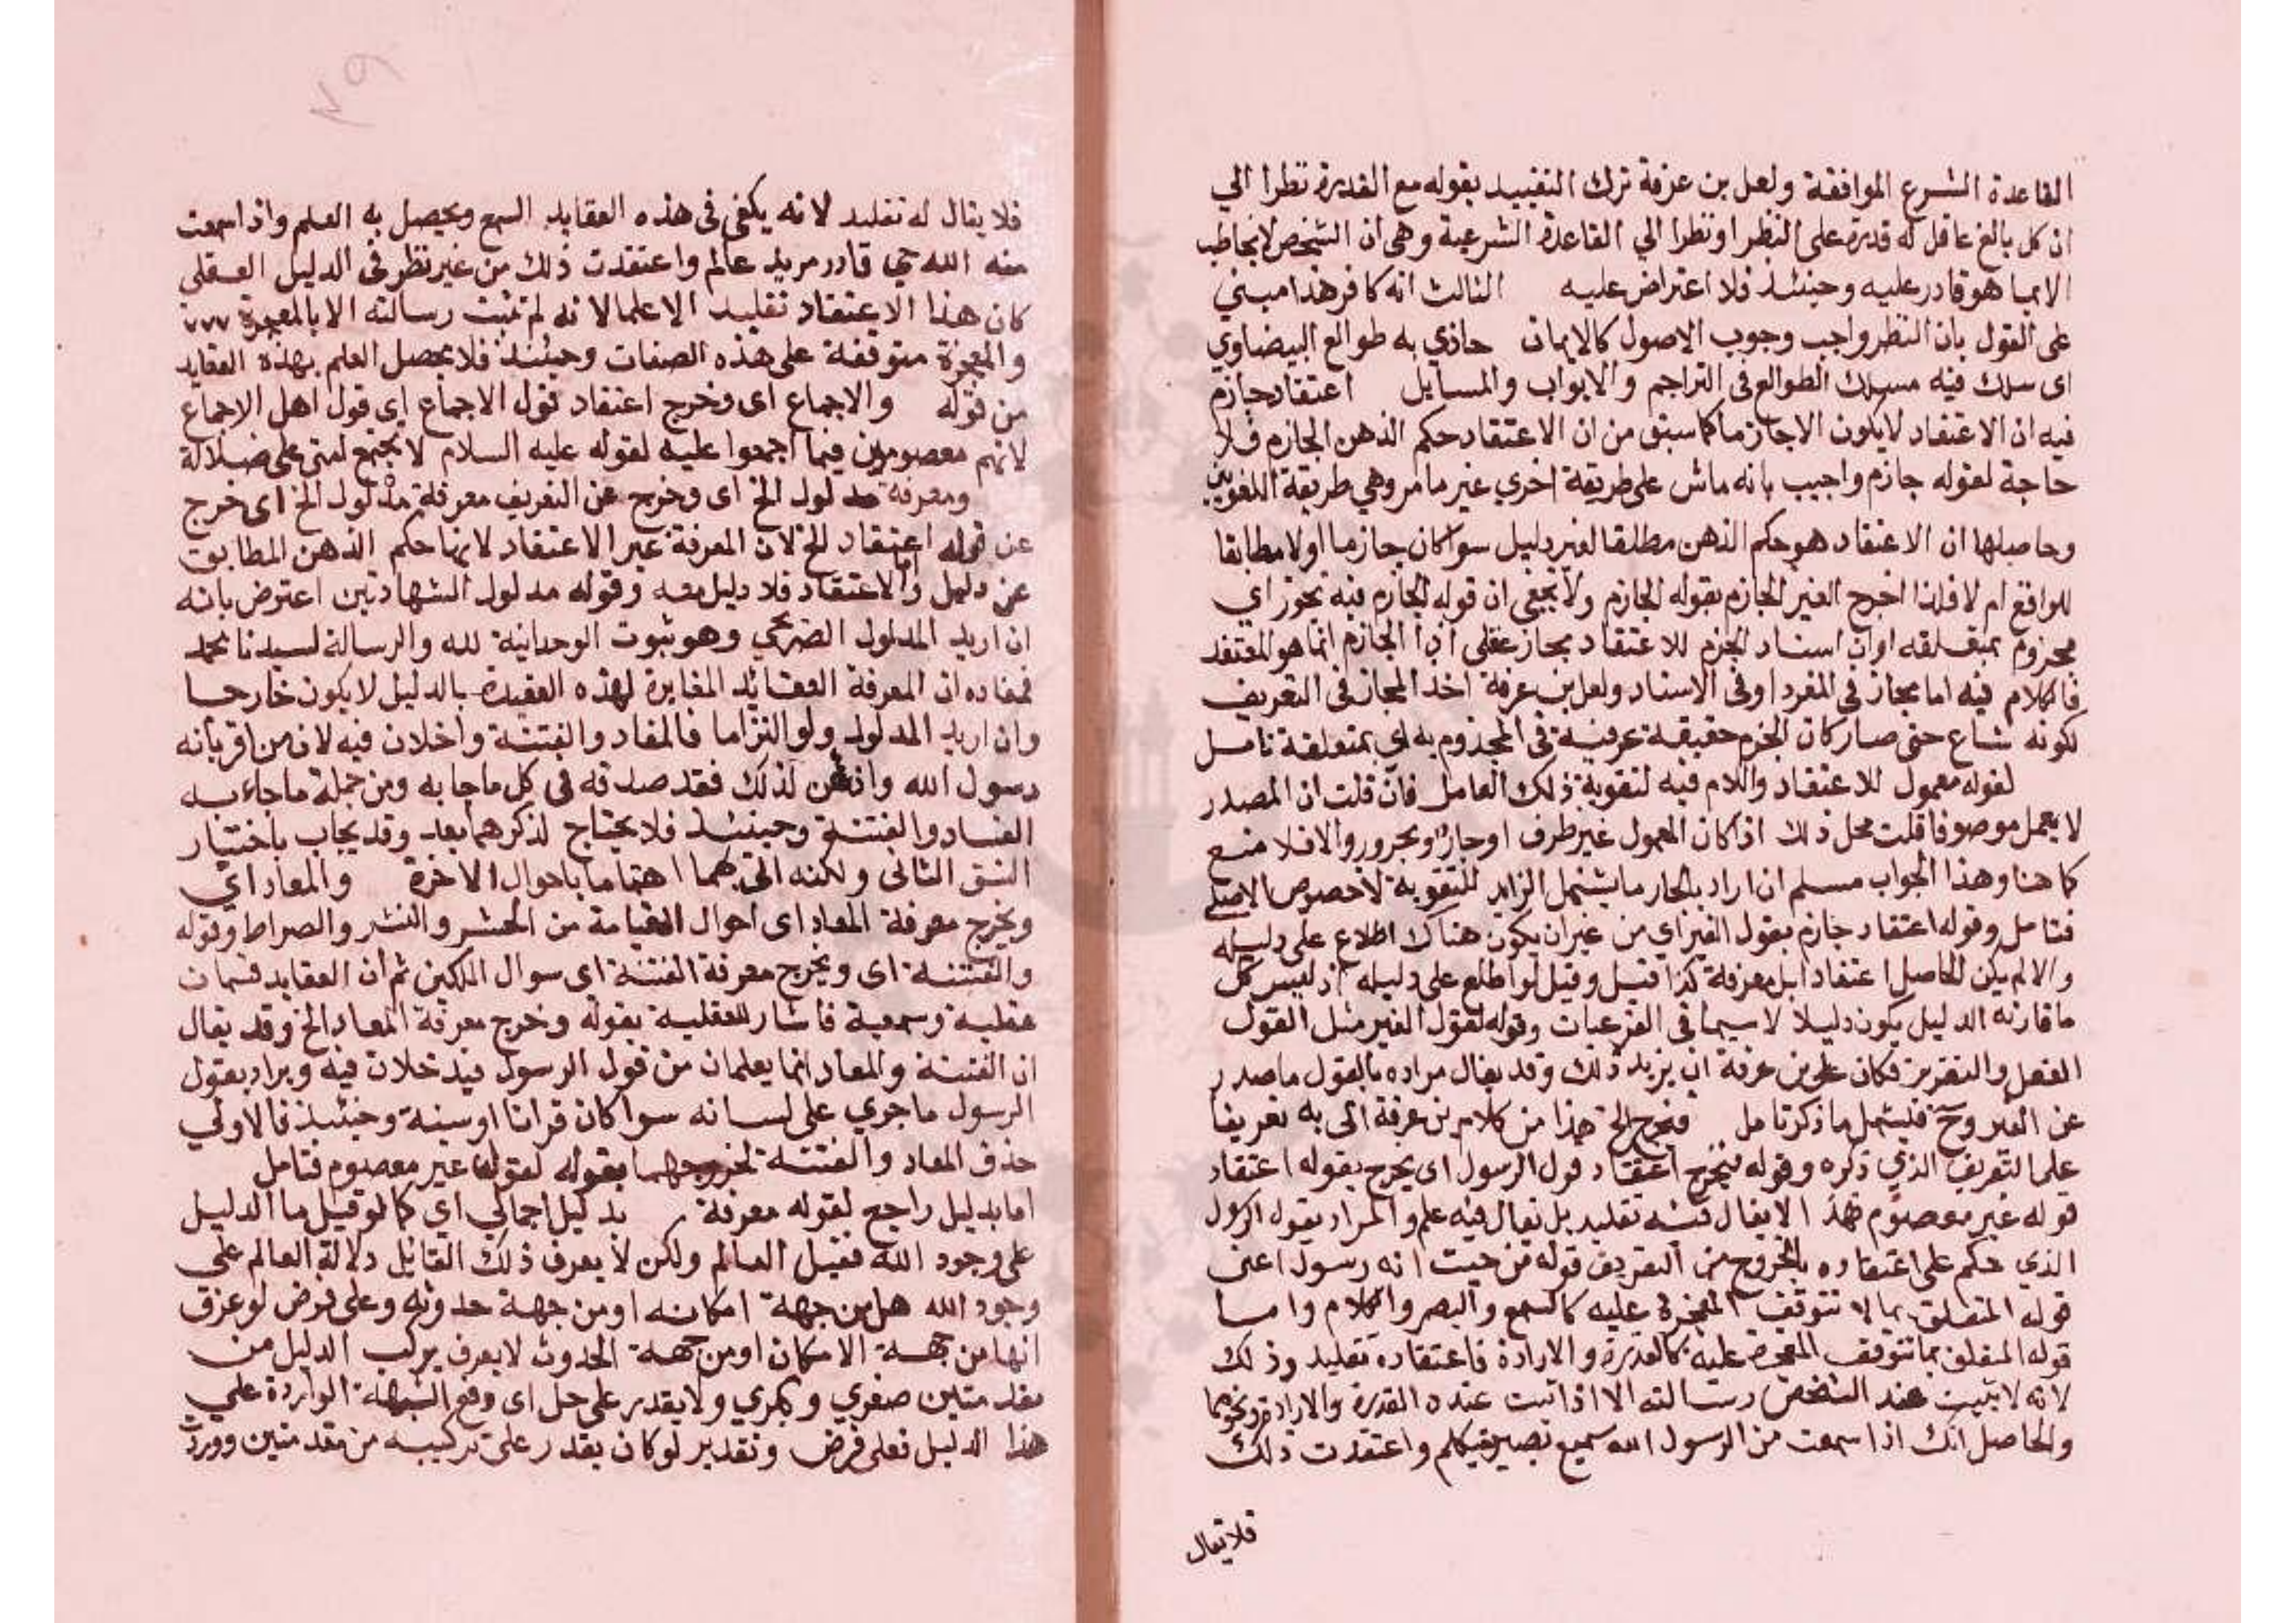 القاعدة الشرع الموافقة ولعل بن عرفة ترك التقييد بقوله مع القدرة نظرا الي
ان كل بالغ عاقل له قدرة على النظر او نظرا الي القاعدة الشرعية وهي ان الشخص لا يخاطب
الا بما هو قادر عليه وحينئذ فلا اعتراض عليه الثالث انه كافر هذا مبني
على القول بان النظر واجب وجوب الاصول كالايمان حاذي به طوالع البيضاوي
اى سلك فيه مسلك الطوالع فى التراجم والابواب والمسايل اعتقاد جازم
فيه ان الاعتقاد لا يكون الا جازما كما سبق من ان الاعتقاد حكم الذهن الجازم فلا
حاجة لقوله جازم واجيب بانه ماش على طريقة اخري غير ما مر وهي طريقة اللغويين
وحاصلها ان الاعتقاد هو حكم الذهن مطلقا لغير دليل سوا كان جازما اولا مطابقا
للواقع ام لا فلذا اخرج الغير الجازم بقوله الجازم ولا يخفى ان قوله الجازم فيه تجوز اي
مجزوم بمتعلقه او ان اسناد الجزم للاعتقاد مجاز عقلى اذا الجازم انما هو المعتقد
فالكلام فيه اما مجاز فى المفرد او فى الاسناد ولعل بن عرفة اخذ المجاز فى التعريف
لكونه شاع حتى صار كان الجزم حقيقة عرفية فى المجذوم به اي بمتعلقة تامل
لقوله معمول للاعتقاد واللام فيه لتقوية ذلك العامل فان قلت ان المصدر
لا يعمل موصوفا قلت محل ذلك اذا كان المعمول غير ظرف او جار ومجرور والا فلا منع
كما هنا وهذا الجواب مسلم ان اراد بالجار ما يشتمل الزايد للتقوية لا خصوص الاصلي
فتامل وقوله اعتقاد جازم بقول الغير اي من غير ان يكون هناك اطلاع على دليله
والا لم يكن الحاصل اعتقادا بل معرفة كذا قيل وقيل لو اطلع على دليله اذ ليس كل
ما قارنه الدليل يكون دليلا لا سيما فى الفرعيات وقوله لقول الغير مثل القول
الفعل والتقرير فكان على بن عرفة ان يزيد ذلك وقد يقال مراده بالقول ما صدر
عن الغير وح فيشمل ما ذكر تامل فيخرج الخ هذا من كلام بن عرفة اتى به تعريفا
على التعريف الذي ذكره وقوله فيخرج اعتقاد قول الرسول اى يخرج بقوله اعتقاد
قوله غير معصوم فهذا لا يقال فيه تقليد بل يقال فيه علم والمراد بقوله الرسول
الذي حكم على اعتقاده بالخروج من التعريف قوله من حيث انه رسول اعنى
قوله المتعلق بما لا تتوقف المعجزة عليه كالسمع والبصر والكلام واما
قوله المتعلق بما تتوقف المعجزة عليه كالقدرة والارادة فاعتقاده تقليد وذلك
لانه لا تثبت عند الشخص رسالته الا اذا ثبت عنده القدرة والارادة ونحوهما
والحاصل انك اذا سمعت من الرسول الله سميع بصير متكلم واعتقدت ذلك
فلا يقال
فلا يقال له تقليد لانه يكفى فى هذه العقايد السمع ويحصل به العلم واذا سمعت
منه الله حي قادر مريد عالم واعتقدت ذلك من غير نظر فى الدليل العقلى
كان هذا الاعتقاد تقليد الا علما لانه لم تثبت رسالته الا بالمعجزة
والمعجزة متوقفة على هذه الصفات وحينئذ فلا يحصل العلم بهذه العقايد
من قوله والاجماع اى وخرج اعتقاد قول الاجماع اي قول اهل الاجماع
لانهم معصومين فيما اجمعوا عليه لقوله عليه السلام لا تجتمع امتى على ضلالة
ومعرفة مدلول الخ اى وخرج عن التعريف معرفة مدلول الخ اى خرج
عن قوله اعتقاد الخ لان المعرفة غير الاعتقاد لانها حكم الذهن المطابق
عن دليل واما الاعتقاد فلا دليل معه وقوله مدلول الشهادتين اعترض بانه
ان اريد المدلول الصريحي وهو ثبوت الوحدانية لله والرسالة لسيدنا محمد
فمفاده ان المعرفة العقايد المغايرة لهذه العقيدة بالدليل لا يكون خارجا
وان اريد المدلول ولو التزاما فالمفاد والفتنة داخلان فيه لان من اقر بانه
رسول الله واذعن لذلك فقد صدقه فى كل ما جا به ومن جملة ما جاء به
الفساد والفتنة وحينئذ فلا يحتاج لذكرهما بعد وقد يجاب باختيار
الشق الثانى ولكنه اتى بهما اهتماما باحوال الاخرة والمعاد اي
ويخرج معرفة المعاد اى احوال القيامة من الحشر والنشر والصراط وقوله
والفتنة اى ويخرج معرفة الفتنة اى سوال الملكين ثم ان العقايد قسمان
عقلية وسمعية فاشار للعقلية بقوله وخرج معرفة المعاد الخ وقد يقال
ان الفتنة والمعاد انما يعلمان من قول الرسول فيدخلان فيه ويراد بقول
الرسول ما جري على لسانه سوا كان قرانا او سنة وحينئذ فالاولي
حذف المعاد والفتنة لخروجهما بقوله لقول غير معصوم فتامل
اما بدليل راجع لقوله معرفة بدليل اجمالي اي كما لو قيل ما الدليل
على وجود الله فقيل العالم ولكن لا يعرف ذلك القائل دلالة العالم على
وجود الله هل من جهة امكانه او من جهة حدوثه وعلى فرض لو عرف
انها من جهة الامكان او من جهة الحدوث لا يعرف يركب الدليل من
مقدمتين صغري وكبري ولا يقدر على حل اى دفع الشبهة الواردة علي
هذا الدليل فعلى فرض وتقدير لو كان يقدر على تركيبه من مقدمتين ووردت